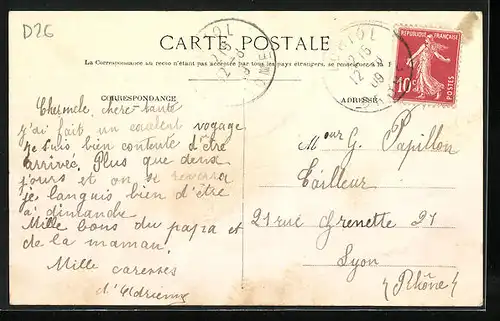 D26
CARTE POSTALE
La Correspondance au recto n'étant pas acceptée par tous les pays étrangers, se renseigner à la
CORRESPONDANCE
ADRESSE
RÉPUBLIQUE FRANÇAISE
10c
POSTES
chère
j'ai fait un excelent voyage
je suis bien contente d'être
arrivé. Plus que deux
jours et on se reverra
je languis bien d'être
à dimanche
Mille bons du papa et
de la maman
Mille caresses
d'Adrienne
Mour G. Papillon
Tailleur
21 rue Grenette 21
Lyon
(Rhône)